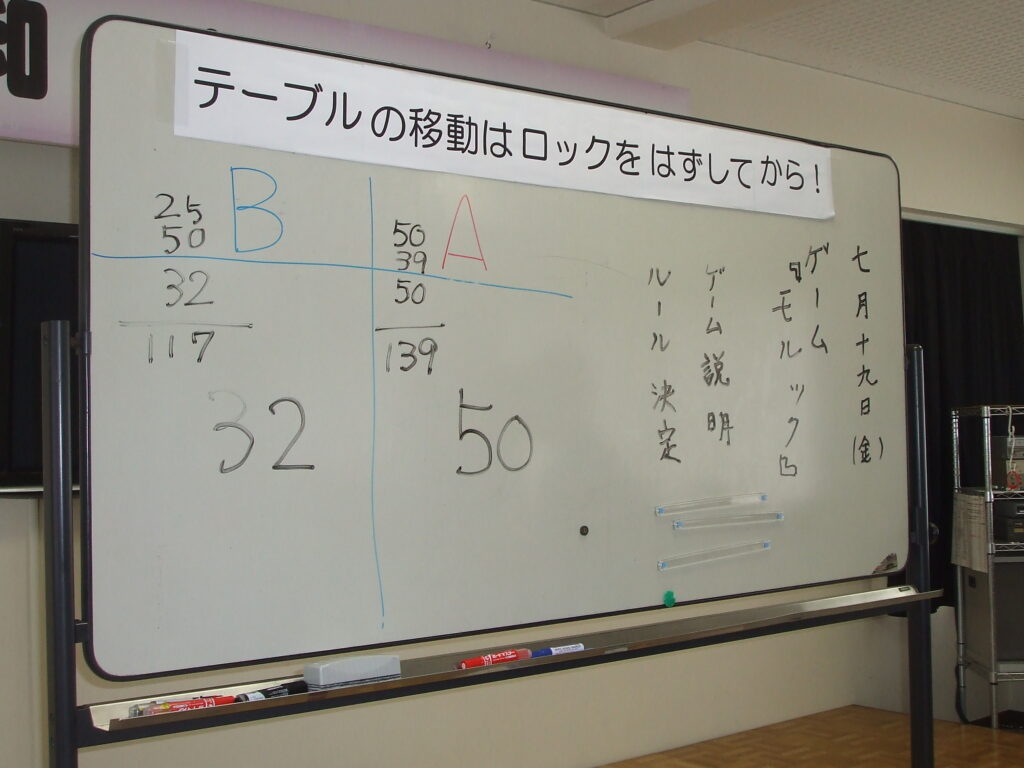 テーブルの移動はロックをはずしてから!
25
50
B
32
117
32
50
39
A
50
139
50
七月十九日(金)
ゲーム
『モルック』
ゲーム説明
ルール決定